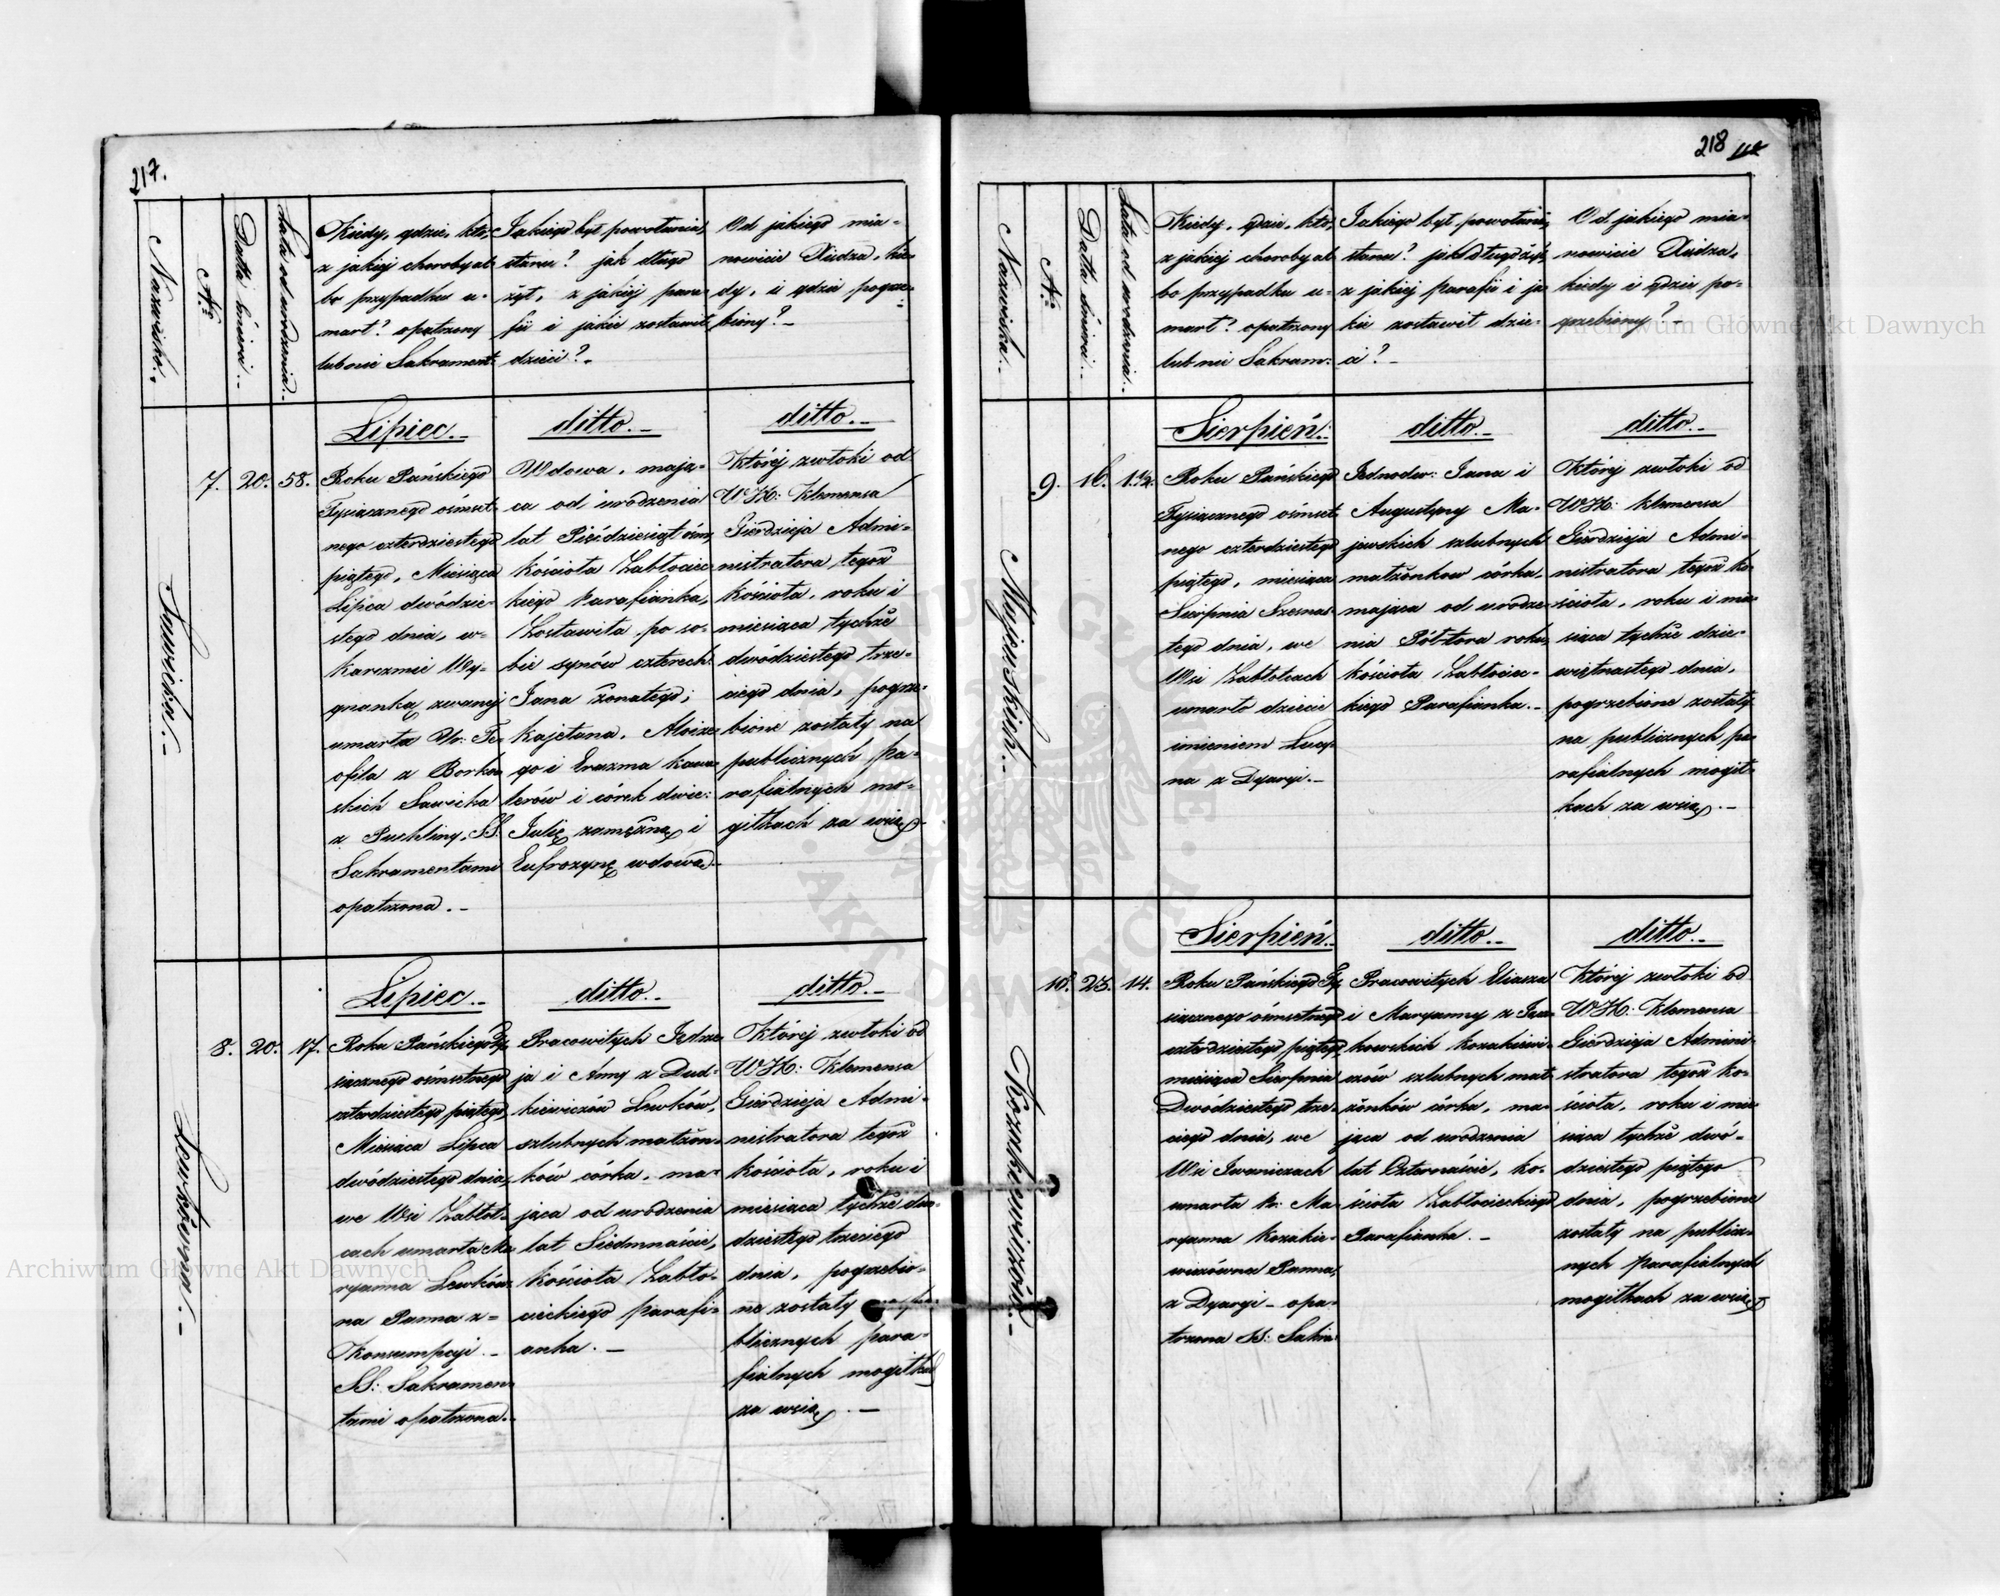 217.
Nazwisko.
No
Datta śmierci.
Lata od urodzenia.
Kiedy, gdzie, kto,
z jakiej choroby al
bo przypadku u-
mart? opatrzony
lub nie Sakrament:
Jakiego był powołania,
stanu? jak długo
żył, z jakiéj para-
fii i jakie zostawił
dzieci?
Od jakiego mia-
nowicie Xiędza, kie-
dy, i gdzie pogrze-
biony?
Sawicka.
7. 20. 58.
Lipiec.
Roku Pańskiego
Tysiącznego ośmset-
nego czterdziestego
piątego, Miesiąca
Lipca dwódzie-
stego dnia, w-
Karczmie Wy-
gnanką zwanej
umarła Ur: Te-
ofila z Borkow
skich Sawicka
z Puchliny, SS:
Sakramentami
opatrzona.
ditto.
Wdowa, mają-
ca od urodzenia
lat Pięćdziesiąt ośm,
kościoła Zabłociec
kiego Parafianka,
Zostawiła po so-
bie synów czterech
Jana żonatego;
Kajetana, Aloize
go i Erazma kawa
lerów i córek dwie:
Julię zamężną i
Eufrozynę wdowę.
ditto.
Któréj zwłoki od
WX: Klemensa
Gierdzieja Admi-
nistratora tegoż
kościoła, roku i
miesiąca tychże
dwódziestego trze-
ciego dnia, pogrze-
bione zostały na
publicznych pa-
rafialnych mo-
giłkach za wsią
Lewkówna.
8. 20. 17.
Lipiec.
Roku Pańskiego Ty
siącznego ośmsetnego
czterdziestego piątego,
Miesiąca Lipca
dwódziestego dnia,
we Wsi Zabłot-
cach umarła Ma
ryanna Lewków
na Panna z-
Konsumpcyi.
SS: Sakramen-
tami opatrzona.
ditto.
Pracowitych Jędrze
ja i Anny z Dud-
kiewiczów Lewków,
szlubnych małżon-
ków córka, ma-
jąca od urodzenia
lat Siedmnaście,
Kościoła Zabło-
cieckiego parafi-
anka.
ditto.
Któréj zwłoki od
WX: Klemensa
Gierdzieja Admi-
nistratora tegoż
kościoła, roku i
miesiąca tychże dwó-
dziestego trzeciego
dnia, pogrzebio-
ne zostały na pu-
blicznych para-
fialnych mogiłkach
za wsią.
218
Nazwiska.
No
Datta śmierci.
Lata od urodzenia.
Kiedy, gdzie, kto,
z jakiej choroby al
bo przypadku u-
mart? opatrzony
lub nie Sakram:
Jakiego był powołania,
stanu? jak długo żył,
z jakiej parafii i ja
kie zostawił dzie-
ci?
Od jakiego mia-
nowicie Xiędza,
kiedy i gdzie po-
grzebiony?
9. 16. 1 1/2.
Sierpień.
Roku Pańskiego
Tysiącznego ośmset
nego czterdziestego
piątego, miesiąca
Sierpnia Szesnas-
tego dnia, we
Wsi Zabłotcach
umarło dziecie
imieniem Lucy-
na z Dyaryi.
ditto.
Jednodw: Jana i
Augustyny Ma-
jewskich szlubnych
małżonkow córka,
mająca od urodze-
nia Pół-tora roku,
kościoła Zabłociec-
kiego Parafianka.
ditto.
Któréj zwłoki od
WX: Klemensa
Gierdzieja Admi-
nistratora tegoż ko-
ścioła, roku i mie-
siąca tychże dzie-
więtnastego dnia,
pogrzebione zostały
na publicznych pa-
rafialnych mogił-
kach za wsią.
Kozakiewiczów.
10. 23. 14.
Sierpień.
Roku Pańskiego Ty
siącznego ośmsetnego
czterdziestego piątego
miesiąca Sierpnia
Dwódziestego trze-
ciego dnia, we
Wsi Iwaniczach
umarła Ma-
ryanna Kozakie-
wiczówna Panna,
z Dyaryi opa-
trzona SS: Sakra:
ditto.
Pracowitych Eliasza
i Maryanny z
kowskich Kozakiewi-
czów szlubnych mał
żonków córka, ma-
jąca od urodzenia
lat Czternaście, ko-
ścioła Zabłocieckiego
Parafianka.
ditto.
Któréj zwłoki od
WX: Klemensa
Gierdzieja Admini-
stratora tegoż ko-
ścioła, roku i mie-
siąca tychże dwó-
dziestego piątego
dnia, pogrzebione
zostały na publicz-
nych parafialnych
mogiłkach za wsią
Archiwum Główne Akt Dawnych
Archiwum Główne Akt Dawnych